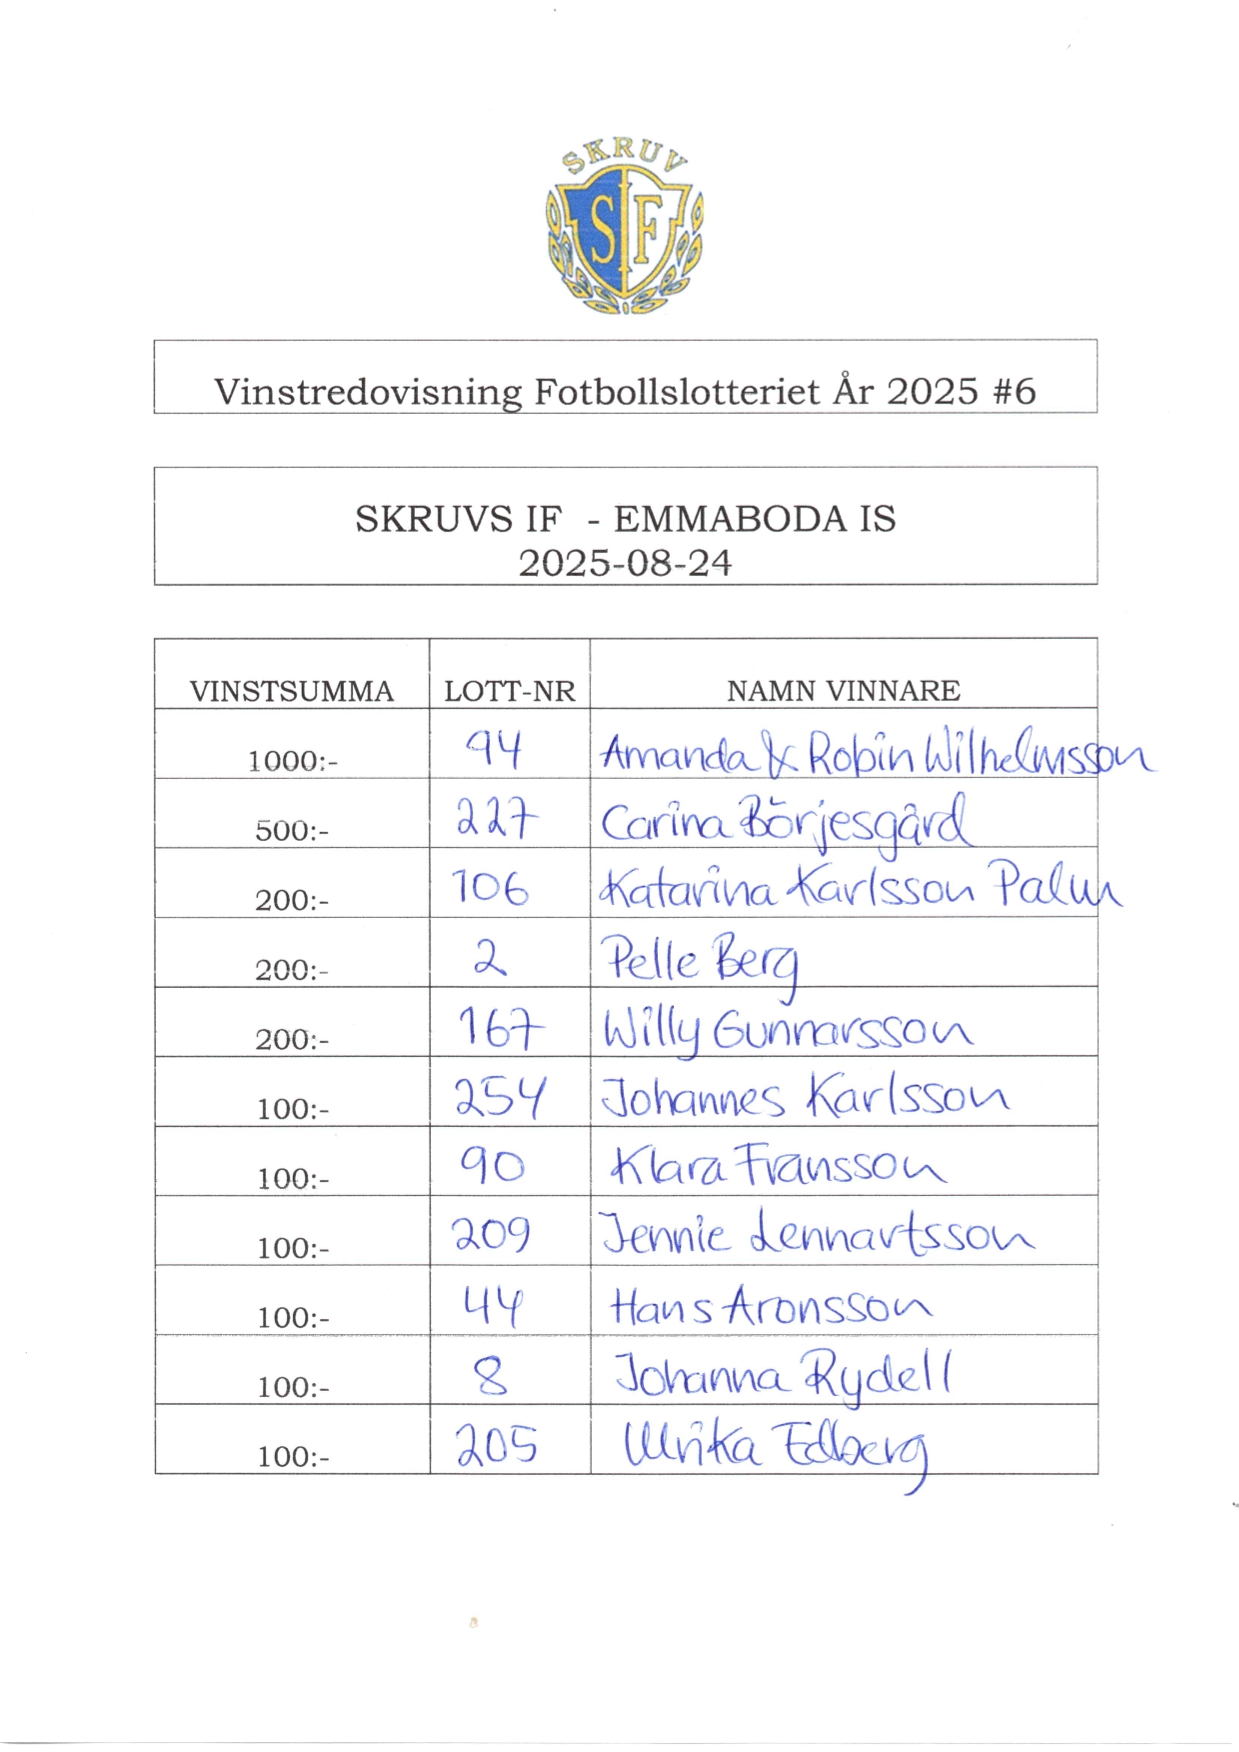 SKRUV
SIF
Vinstredovisning Fotbollslotteriet År 2025 #6
SKRUVS IF - EMMABODA IS
2025-08-24
VINSTSUMMA LOTT-NR NAMN VINNARE
1000:- 94 Amanda & Robin Wilhelmsson
500:- 227 Carina Börjesgård
200:- 106 Katarina Karlsson Palm
200:- 2 Pelle Berg
200:- 167 Willy Gunnarsson
100:- 254 Johannes Karlsson
100:- 90 Klara Fransson
100:- 209 Jennie Lennartsson
100:- 44 Hans Aronsson
100:- 8 Johanna Rydell
100:- 205 Ulrika Edberg